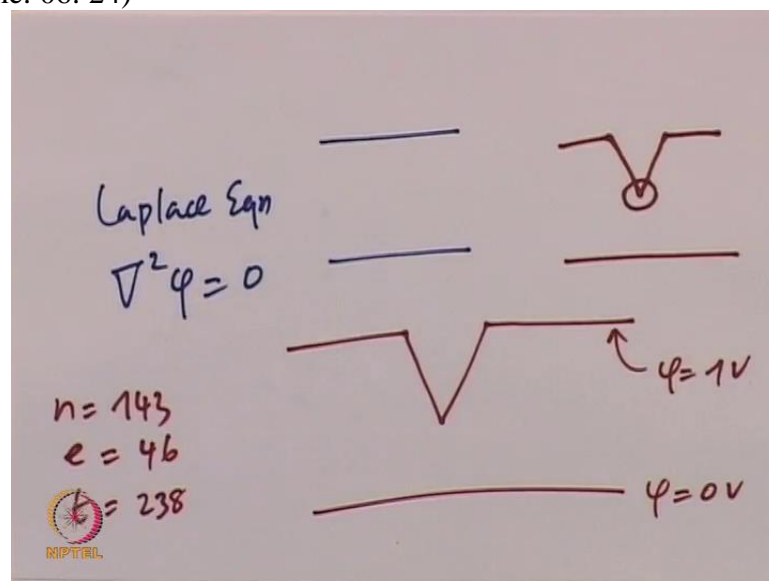 Laplace Eqn
∇²φ = 0
φ = 1V
φ = 0V
n = 143
e = 46
= 238
NPTEL